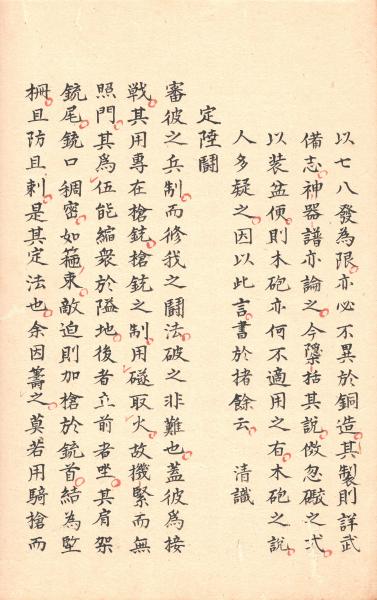 以七八發為限亦必不異於銅造其製則詳武
備志神器譜亦論之今檃括其說倣忽礮之式
以装盆便則木砲亦何不適用之有木砲之說
人多疑之因以此言書於揩餘云　清識
定陸鬪
審彼之兵制而修我之鬪法破之非難也蓋彼爲接
戰其用專在槍銃槍銃之制用磁取火故機緊而無
照門其爲伍能縮衆於隘地後者立前者坐其肩架
銃尾銃口稠密如箍束敵迫則加槍於銃首結為堅
柵且防且刺是其定法也余因籌之莫若用騎槍而